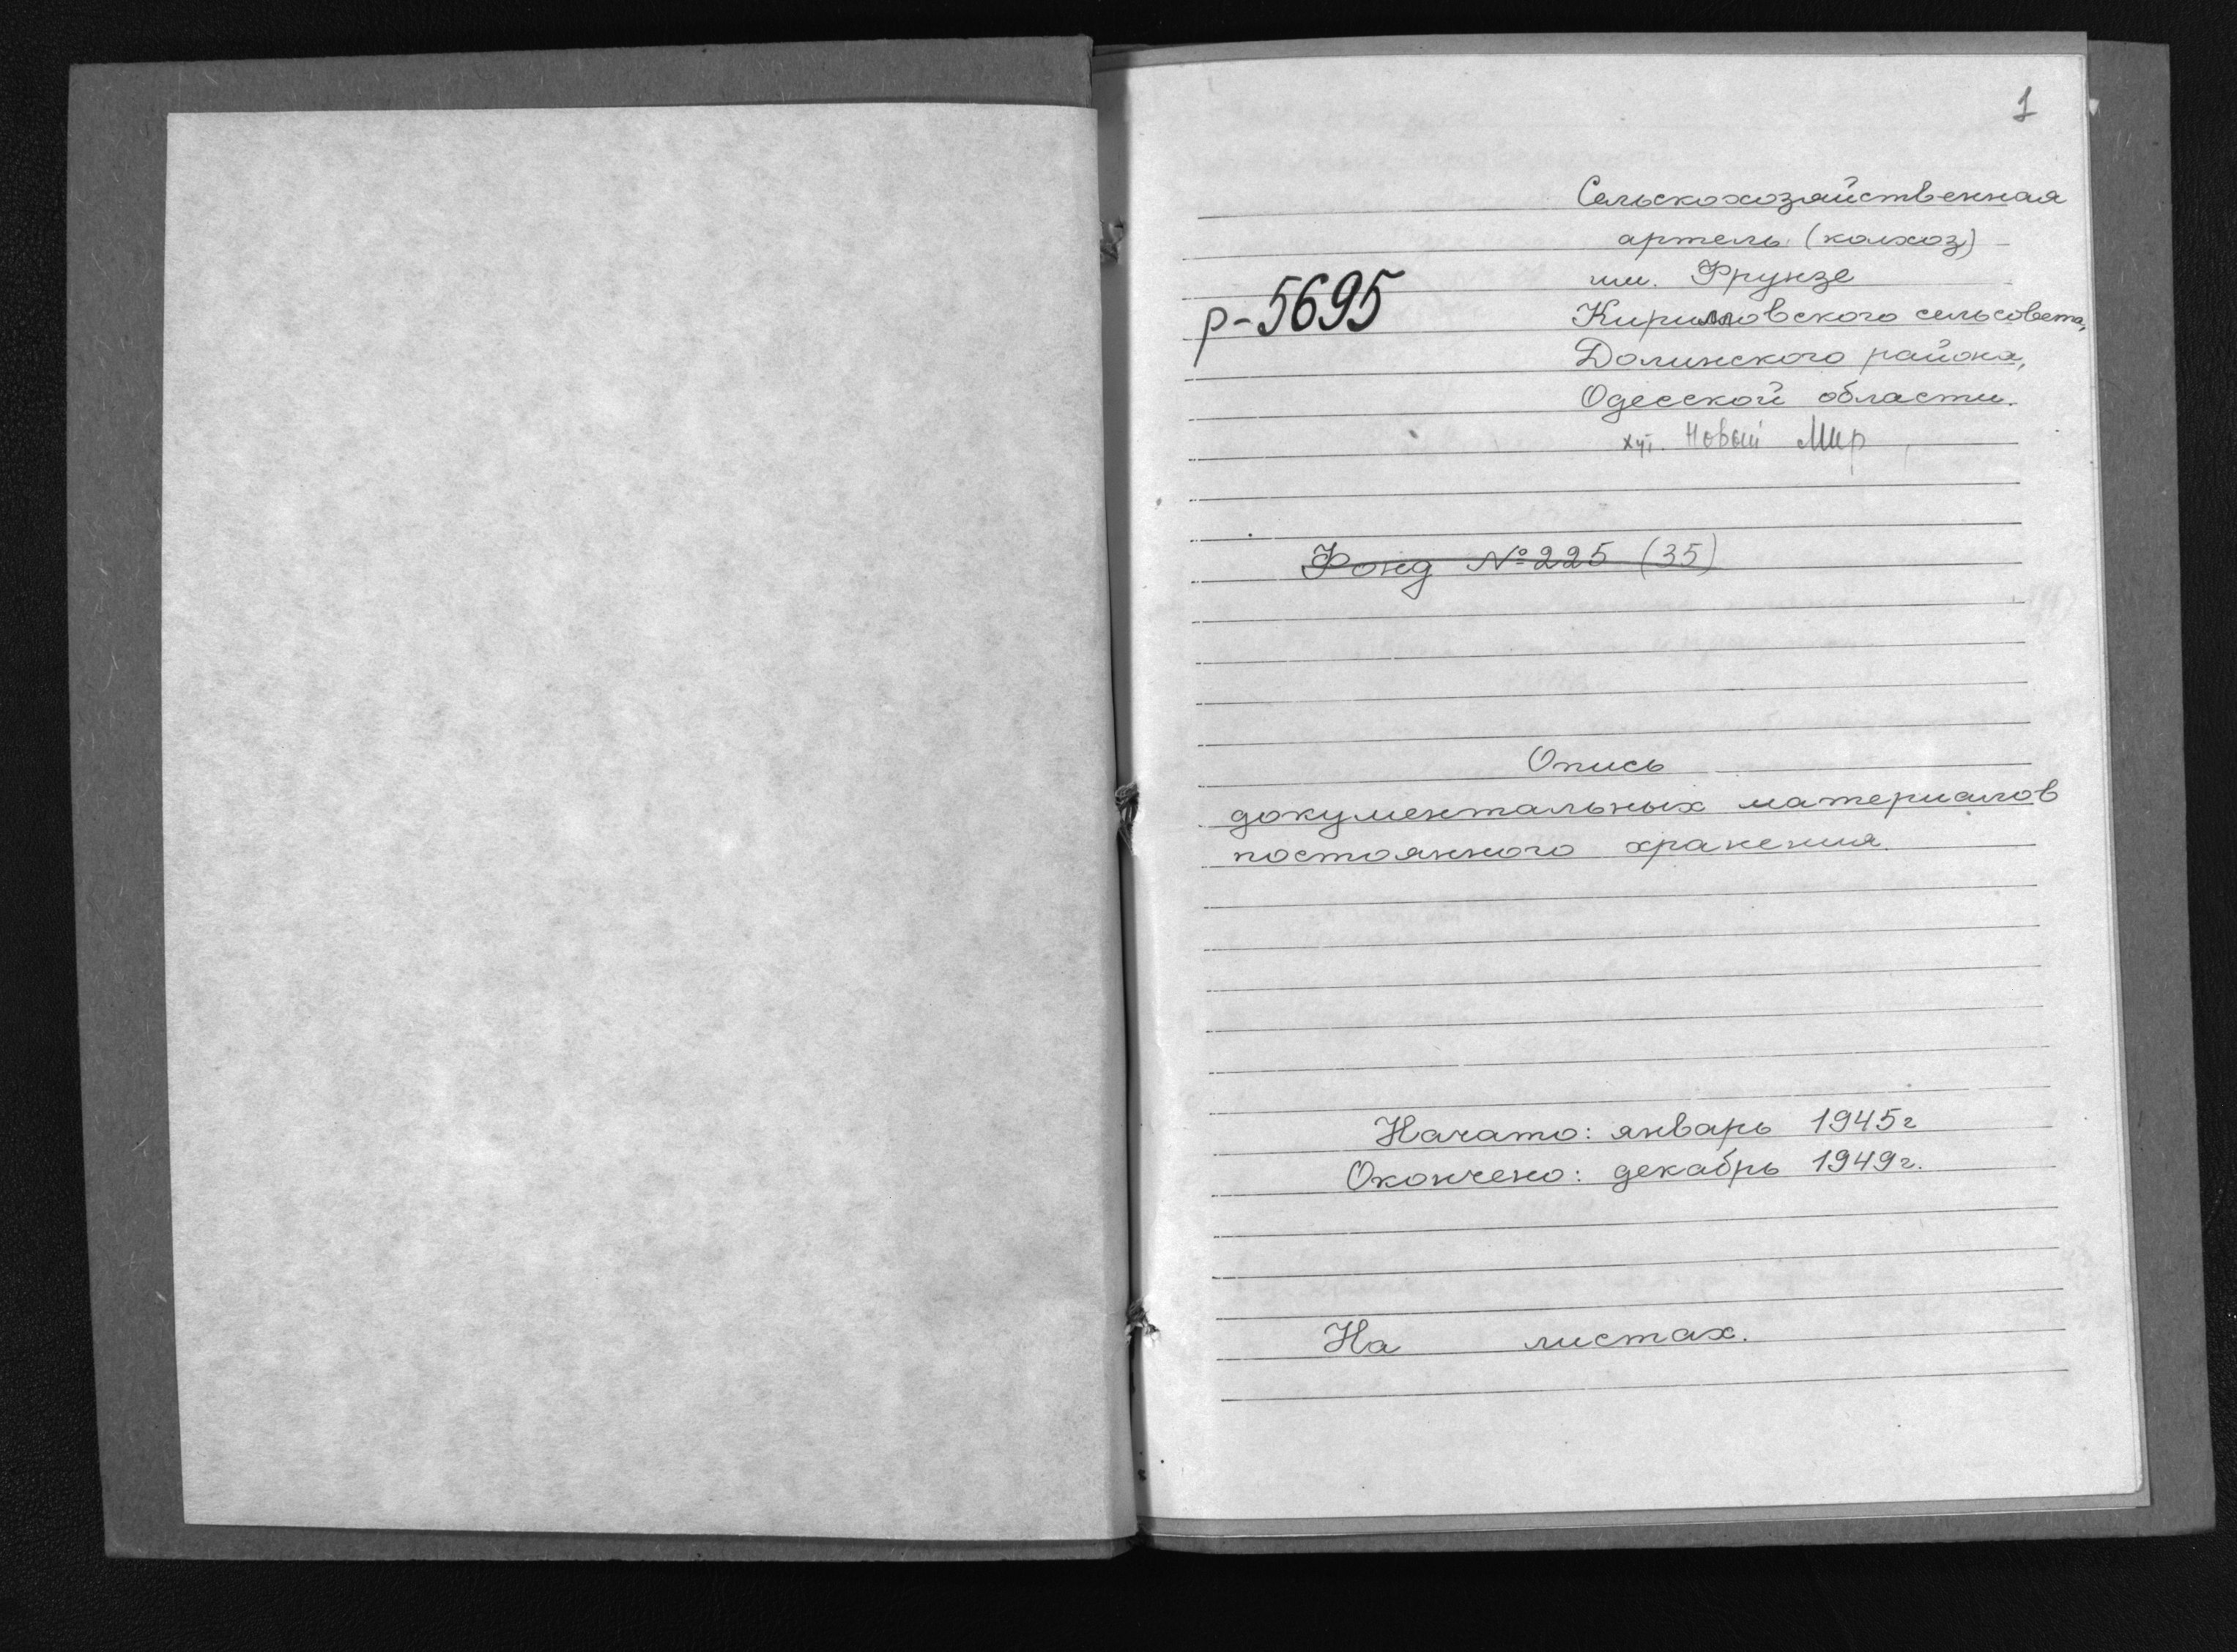 1
Сельскохозяйственная
артель (колхоз)
им. Фрунзе
р-5695
Кирилловского сельсовета,
Долинского района,
Одесской области.
хут. Новый Мир
Фонд №225 (35)
Опись
документальных материалов
постоянного хранения.
Начато: январь 1945г
Окончено: декабрь 1949г.
На листах.